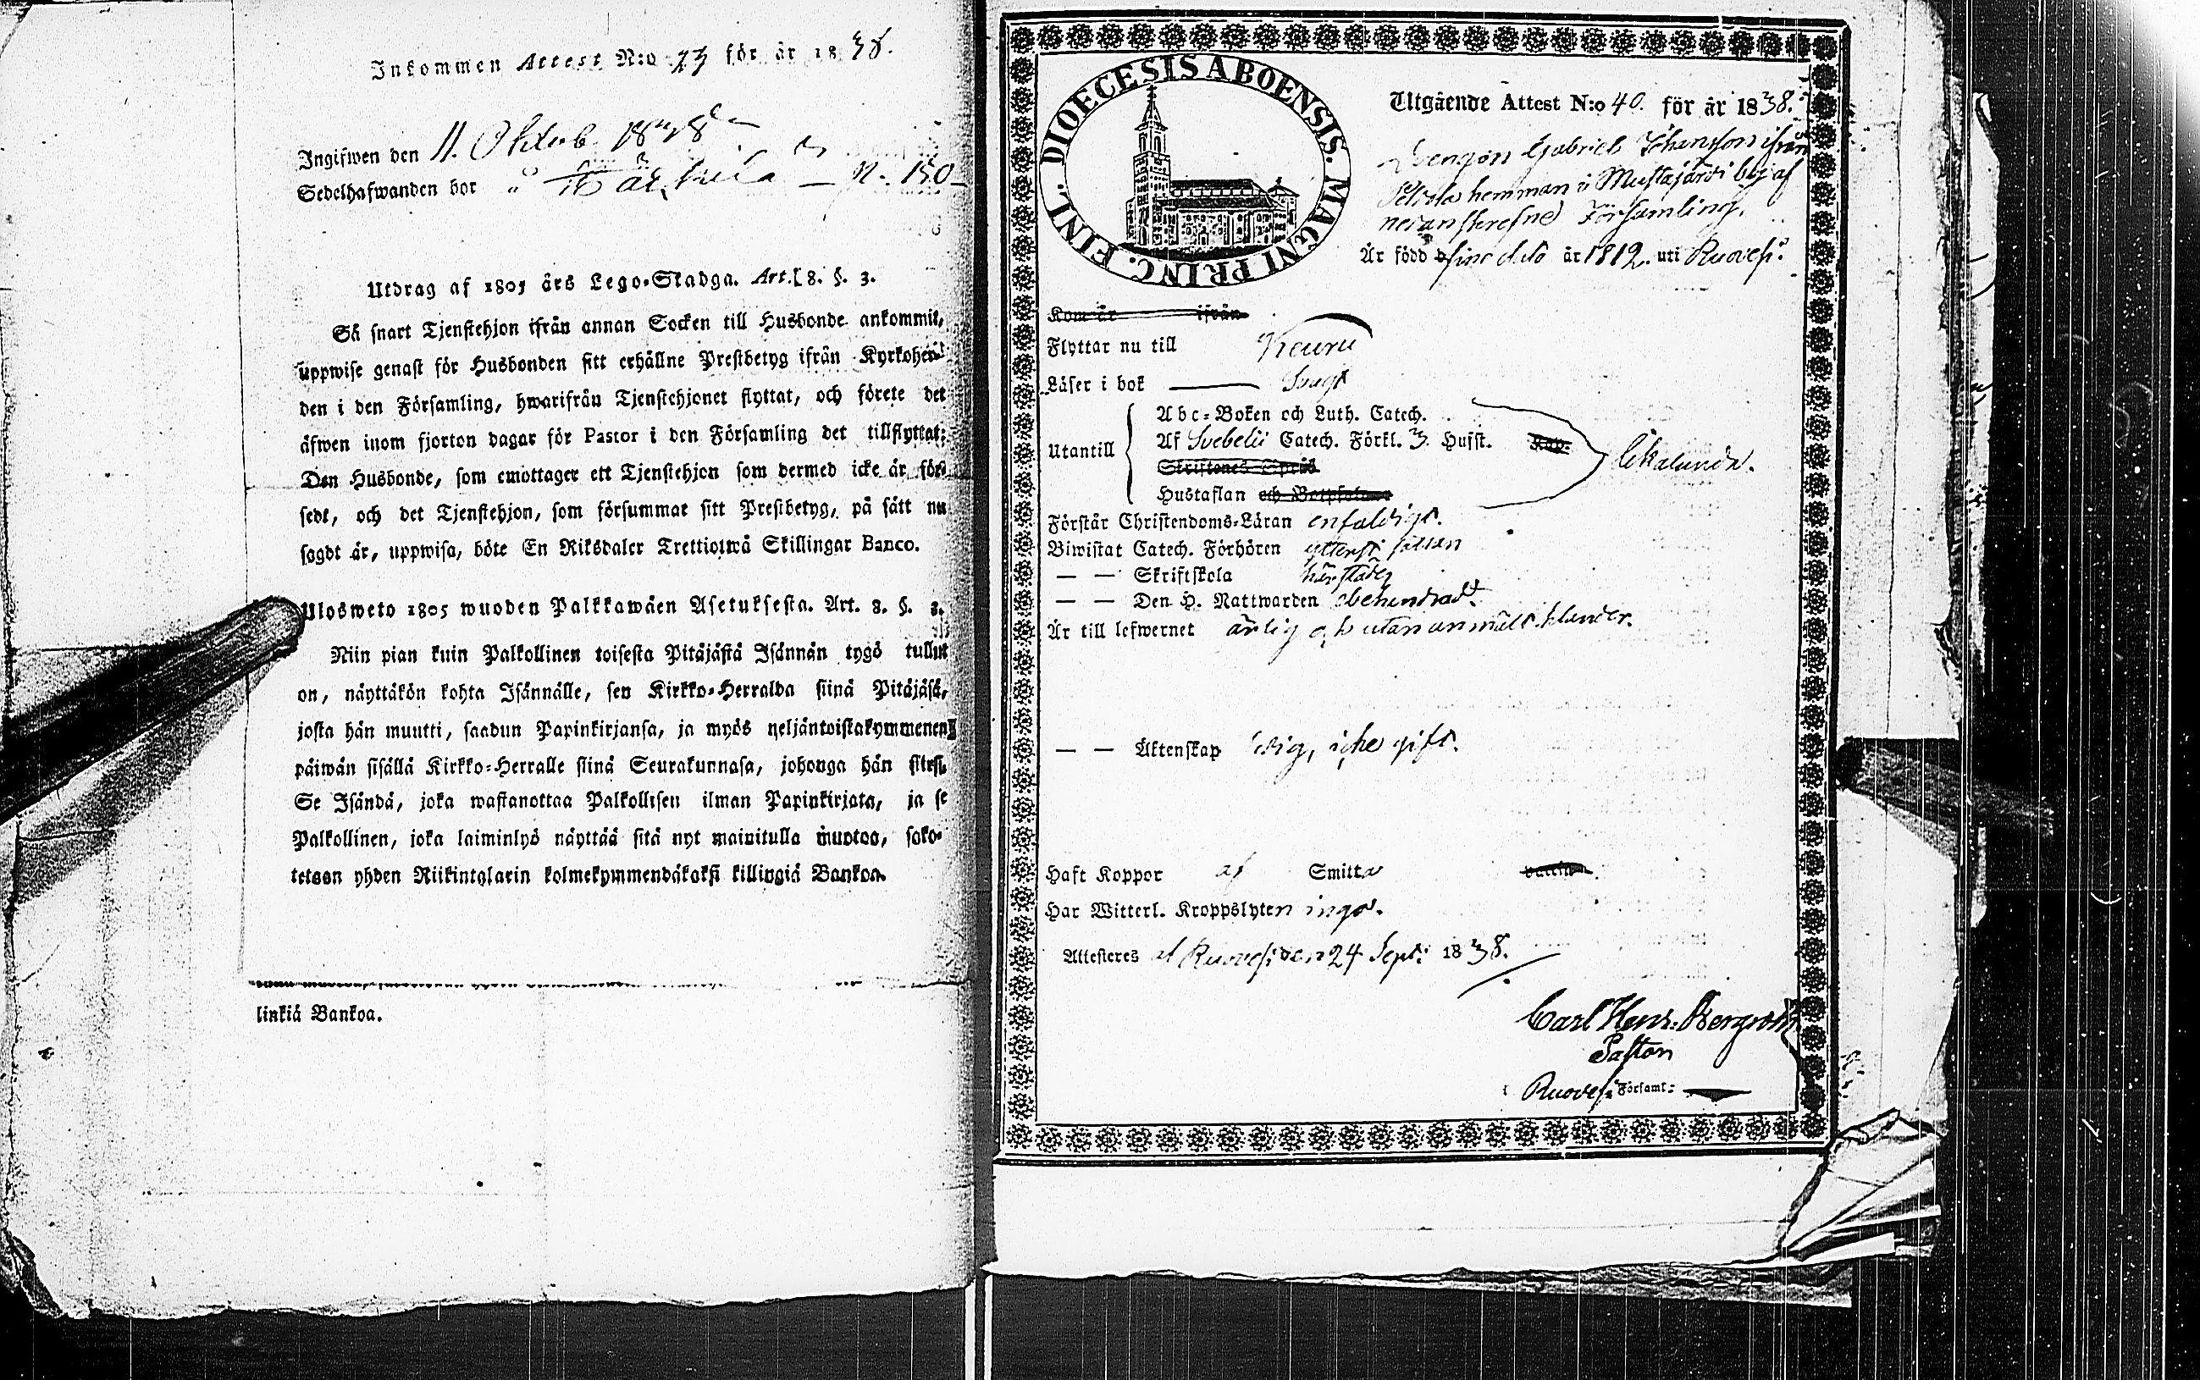 Inkommen Attest N:o 73 för år 1838.
Ingifwen den 11. Oktob. 1838
Sedelhafwanden bor å Härkilä — N. 150
Utdrag af 1805 års Lego-Stadga. Art. 8. §. 3.
Så snart Tjenstehjon ifrån annan Socken till Husbonde ankommit,
uppwise genast för Husbonden sitt erhållne Prestbetyg ifrån Kyrkoher-
den i den Församling, hwarifrån Tjenstehjonet flyttat, och förete det
äfwen inom fjorton dagar för Pastor i den Församling det tillflyttat;
Den Husbonde, som emottager ett Tjenstehjon som dermed icke är för-
sedt, och det Tjenstehjon, som försummar sitt Prestbetyg, på sätt nu
sagdt är, uppwisa, böte En Riksdaler Trettiotwå Skillingar Banco.
Ulosweto 1805 wuoden Palkkawäen Asetuksesta. Art. 8. §. 3.
Niin pian kuin Palkollinen toisesta Pitäjästä Isännän tygö tullut
on, näyttäkön kohta Isännälle, sen Kirkko-Herralda siinä Pitäjäsä,
josta hän muutti, saadun Papinkirjansa, ja myös neljäntoistakymmenen
päiwän sisällä Kirkko-Herralle siinä Seurakunnasa, johonga hän siirsi.
Se Isändä, joka wastanottaa Palkollisen ilman Papinkirjata, ja se
Palkollinen, joka laiminlyö näyttää sitä nyt mainitulla muotoa, sako-
tetaan yhden Riikintalarin kolmekymmendäkaksi killingiä Bankoa.
linkiä Bankoa.
DIOECESIS ABOENSIS. MAGNI PRINC. FINL.
Utgående Attest N:o 40. för år 1838.
Drengen Gabriel Johansson ifrån
hemman i Mustajärvi by af
nedanskrefne Församling.
Är född år 1812. uti Ruovesi.
Kom år ifrån
Flyttar nu till Keuru
Läser i bok — Svagt
Utantill
Abc-Boken och Luth. Catech.
Af Svebelii Catech. Förkl. 3. Hufst. Kap.
Skriftenes Språk
Hustaflan och Botpsalmer
Förstår Christendoms-Läran enfaldigt.
Biwistat Catech. Förhören ytterst sällan
— — Skriftskola härstädes
— — Den H. Nattwarden obehindrad.
Är till lefwernet ärlig och utan anmält klander.
— — Äktenskap ledig, icke gift.
Haft Koppor af Smitta vaccin
Har Witterl. Kroppslyten inga.
Attesteres af Ruovesi den 24 Sept: 1838.
Carl Henr: Bergroth
Pastor
Ruovesi Församl: